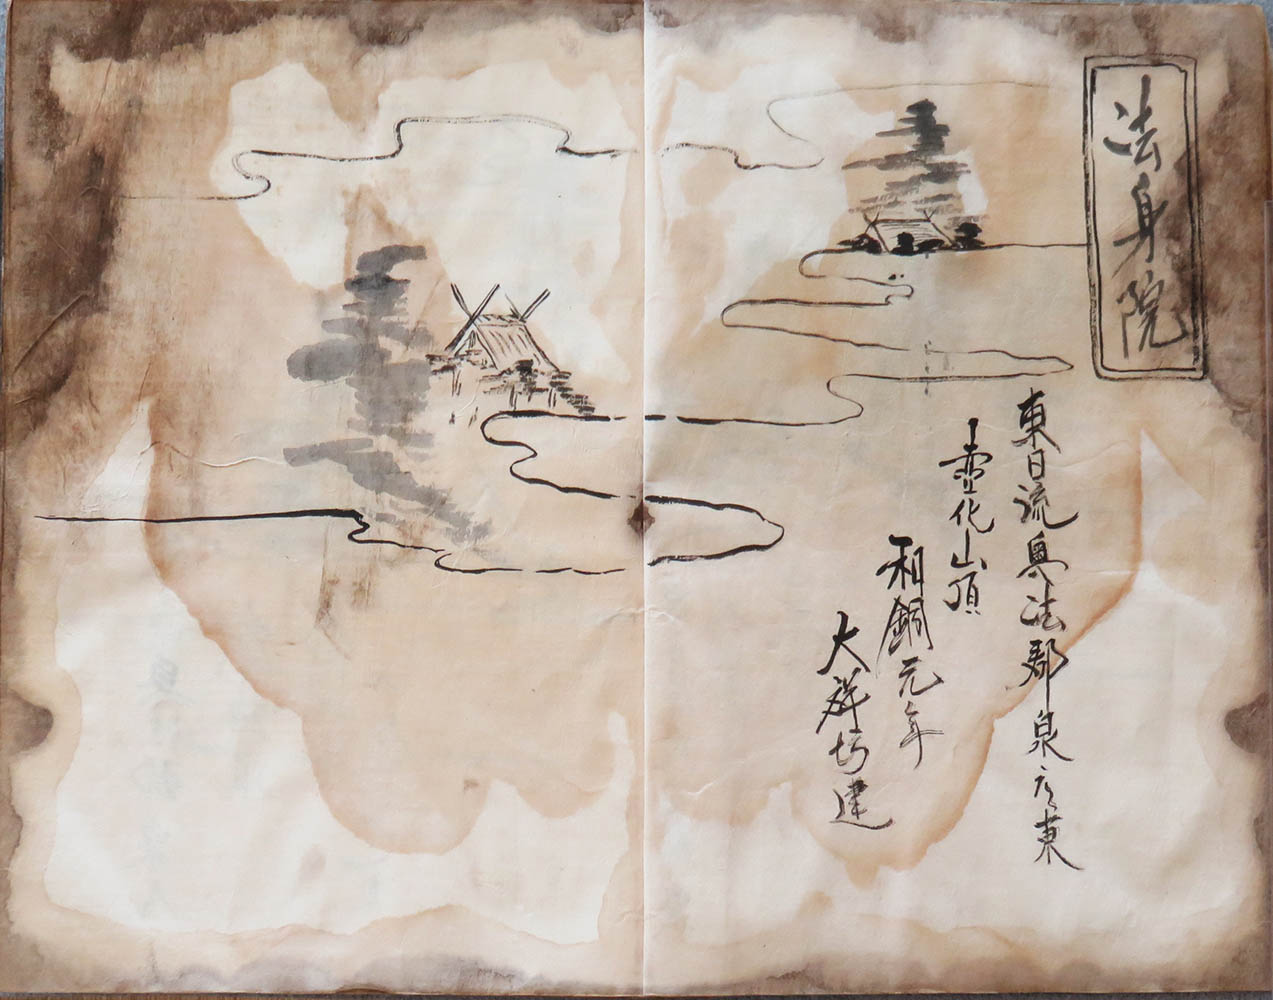 法身院
東日流奥法郡泉之東
壷化山頂
和銅元年
大祥坊建